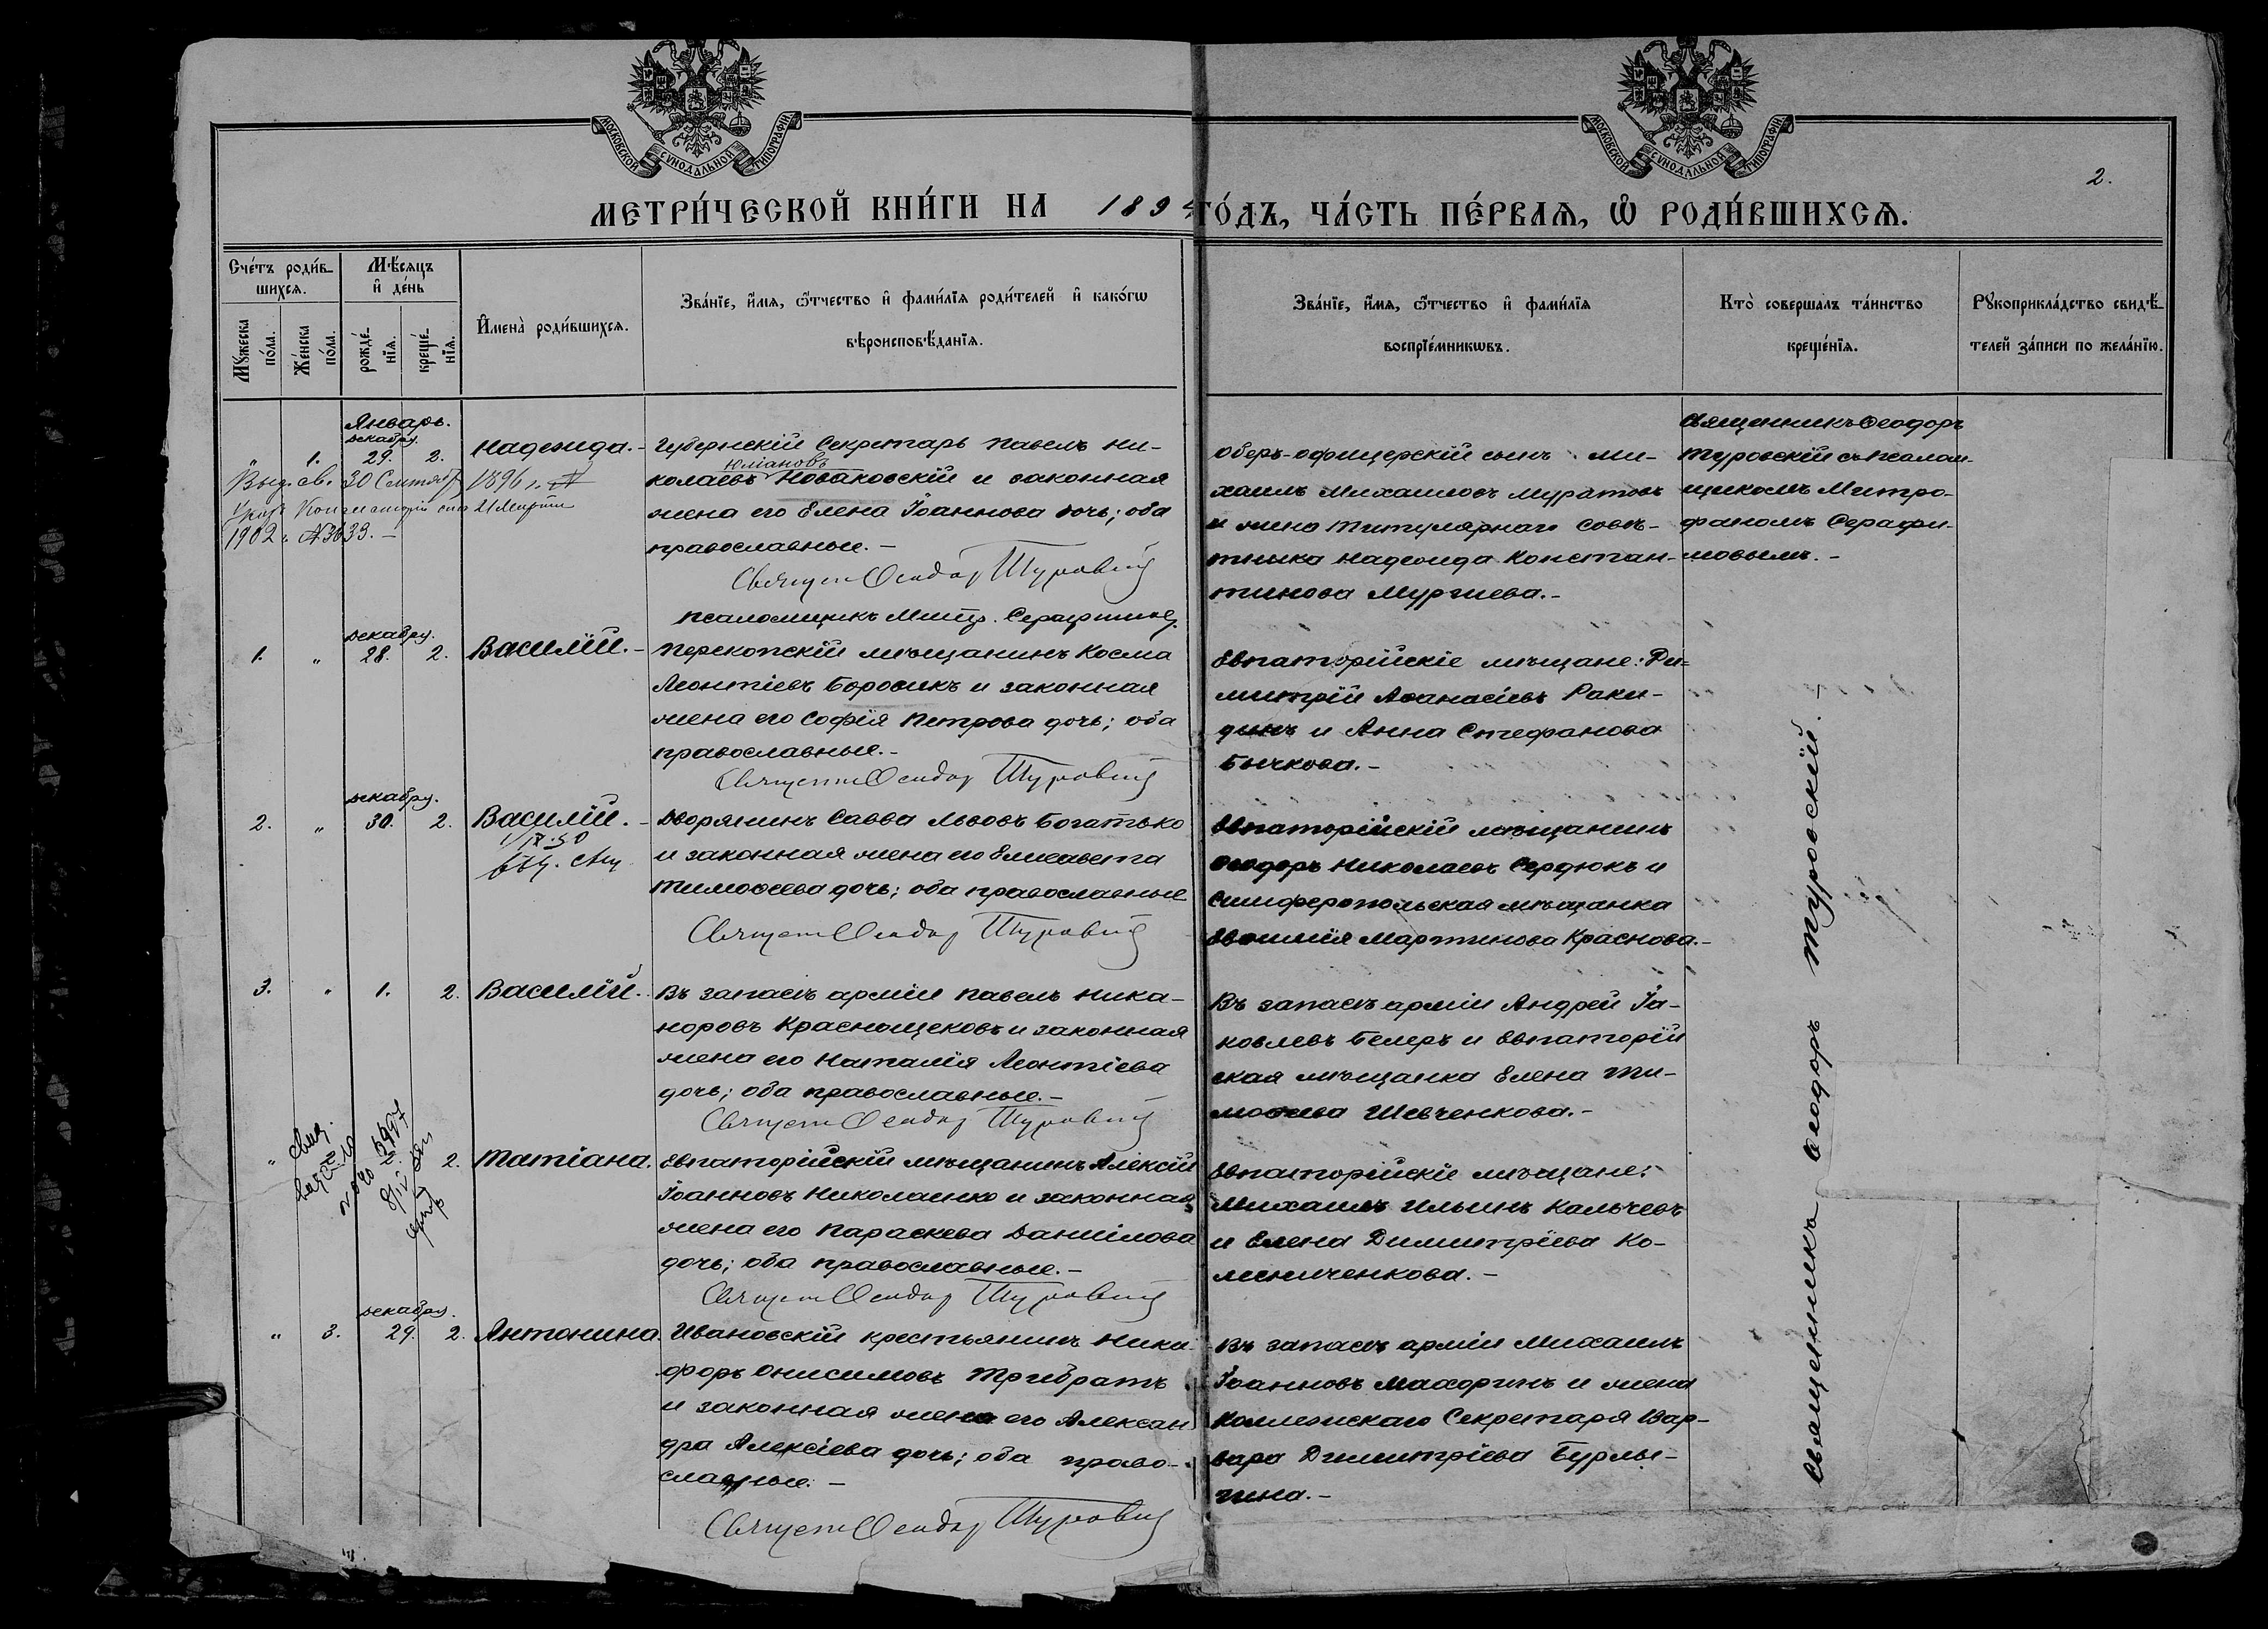 МОСКОВСКОЙ СѴНОДАЛЬНОЙ ТИПОГРАФІИ
МОСКОВСКОЙ СѴНОДАЛЬНОЙ ТИПОГРАФІИ
2.
МЕТРИ́ЧЕСКОЙ КНИ́ГИ НА 189 ГО́ДЪ, ЧА́СТЬ ПЕ́РВАѦ, Ѡ҆ РОДИ́ВШИХСѦ.
Сче́тъ роди́в-
шихсѧ.
Мꙋ́жеска
по́ла.
Же́нска
по́ла.
Мѣ́сѧцъ
и҆ де́нь
рожде́-
нїѧ.
креще́-
нїѧ.
И҆мена̀ роди́вшихсѧ.
Зва́нїе, и҆́мѧ, ѻ҆́тчество и҆ фами́лїѧ роди́телей и҆ како́гѡ
вѣроисповѣ́данїѧ.
Зва́нїе, и҆́мѧ, ѻ҆́тчество и҆ фами́лїѧ
воспрїе́мникѡвъ.
Кто̀ соверша́лъ та́инство
креще́нїѧ.
Рꙋкоприкла́дство свидѣ́-
телей за́писи по жела́нїю.
Январь.
декабря.
„ 1. 29. 2. Надежда. –
Выд. св. 30 Сентября 1896 г. №
Указ Консисторіи отъ 21 Марта
1902 г. № 3633. –
Губернскій Секретарь Павелъ Ни-
Юліановъ
колаевъ Новаковскій и законная
жена его Елена Іоаннова дочь; оба
православные. –
Священ Ѳеодор Туровскій
Псаломщикъ Митр. Серафимов
Оберъ-офицерскій сынъ Ми-
хаилъ Михаиловъ Муратовъ
и жена Титулярнаго Совѣ-
тника Надежда Констан-
тинова Мургиева. –
Священникъ Ѳеодоръ
Туровскій съ псалом-
щикомъ Митро-
фаномъ Серафи-
мовымъ. –
декабря.
1. „ 28. 2. Василій. –
Перекопскій мѣщанинъ Косма
Леонтіевъ Боровикъ и законная
жена его Софія Петрова дочь; оба
православные. –
Священ Ѳеодор Туровскій
Евпаторійскіе мѣщане: Ди-
митрій Аѳанасіевъ Раки-
динъ и Анна Стефанова
Бычкова. –
декабря.
2. „ 30. 2. Василій. –
Дворянинъ Савва Львовъ Богатько
и законная жена его Елисавета
Тимоѳеева дочь; оба православные
Священ Ѳеодор Туровскій
Евпаторійскій мѣщанинъ
Ѳеодоръ Николаевъ Сердюкъ и
Симферопольская мѣщанка
Евѳимія Мартинова Краснова. –
3. „ 1. 2. Василій.
Въ запасѣ арміи Павелъ Ника-
норовъ Краснощековъ и законная
жена его Наталія Леонтіева
дочь; оба православные. –
Священ Ѳеодор Туровскій
Въ запасѣ арміи Андрей Іа-
ковлевъ Белеръ и Евпаторій
ская мѣщанка Елена Ти-
моѳеева Шевченкова. –
„ 2. Татіана.
Евпаторійскій мѣщанинъ Алексій
Іоанновъ Николаенко и законная
жена его Параскева Даніилова
дочь; оба православные. –
Священ Ѳеодор Туровскій
Евпаторійскіе мѣщане:
Михаилъ Ильинъ Кальчевъ
и Елена Димитріева Ко-
лениченкова. –
декабря.
„ 3. 29. 2. Антонина.
Ивановскій крестьянинъ Ники
форъ Онисимовъ Трибратъ
и законная жена его Алексан
дра Алексіева дочь; оба право-
славные. –
Священ Ѳеодор Туровскій
Въ запасѣ арміи Михаилъ
Іоанновъ Махоринъ и жена
Коллежскаго Секретаря Вар-
вара Димитріева Бурлы-
гина. –
Священникъ Ѳеодоръ Туровскій. –